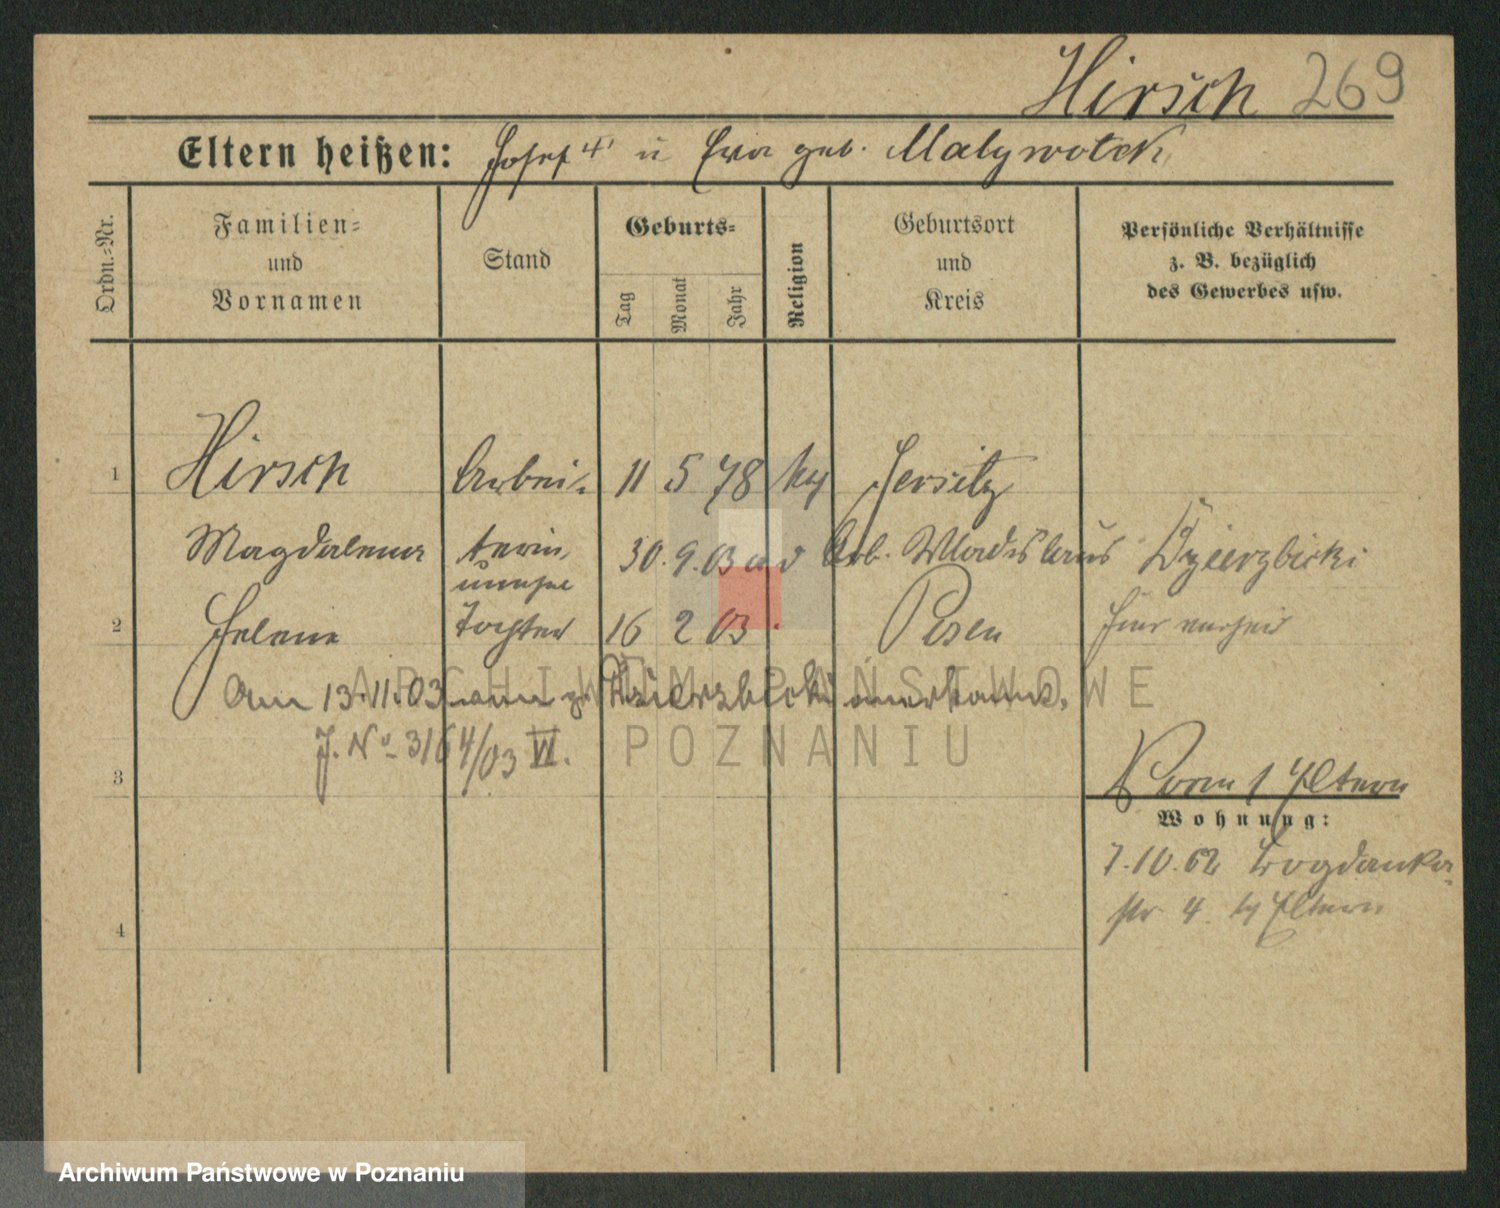 Hirsch 269
Eltern heißen: Josef u Eva geb. Malywotek
Ordn.-Nr.
Familien-
und
Vornamen
Stand
Geburts-
Tag
Monat
Jahr
Religion
Geburtsort
und
Kreis
Persönliche Verhältnisse
z. B. bezüglich
des Gewerbes usw.
1 Hirsch Arbei- 11 5 78 Jersitz
Magdalena terin, 30. 9. 03 Arb. Wladislaus Dzierzbicki
unehe
2 Helene Tochter 16 2 03 Posen
Am 13.11.03 Dzierzbicki anerkannt.
J. No 3164/03 VI.
ARCHIWUM PAŃSTWOWE
POZNANIU
3 Eltern
Wohnung:
7.10.02 Bogdanka-
str 4. Eltern
4
Archiwum Państwowe w Poznaniu